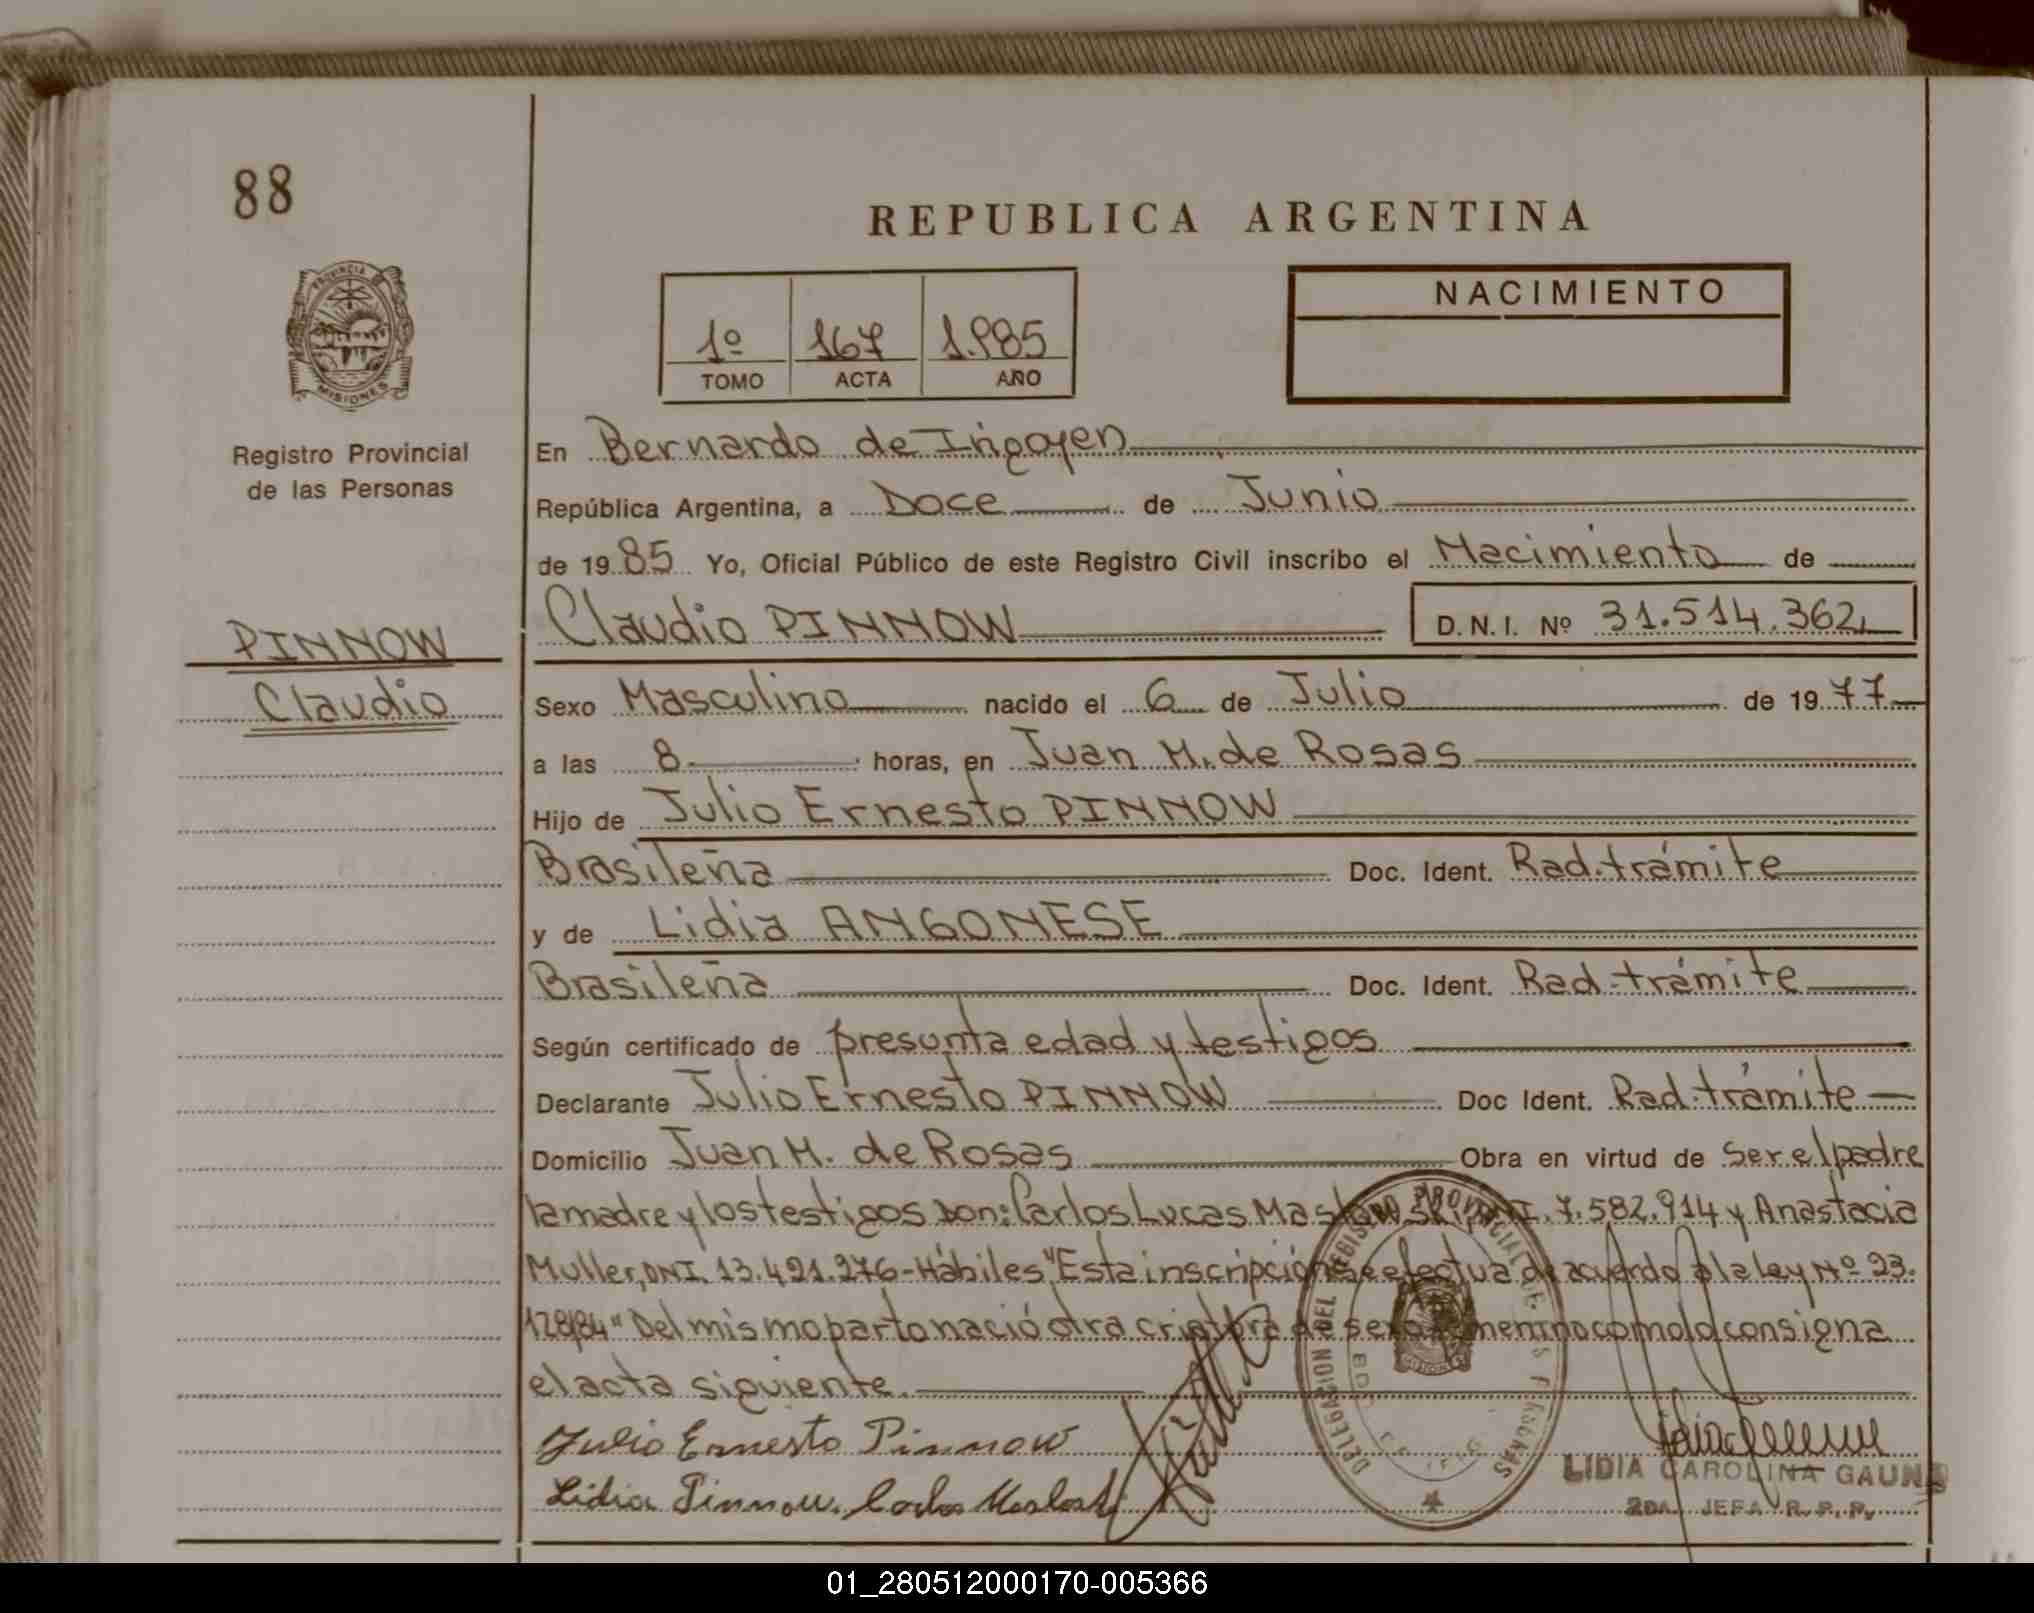 88
REPUBLICA ARGENTINA
PROVINCIA DE
MISIONES
1º 167 1.985
TOMO ACTA AÑO
NACIMIENTO
Registro Provincial
de las Personas
En Bernardo de Irigoyen
República Argentina, a Doce de Junio
de 1985 Yo, Oficial Público de este Registro Civil inscribo el Nacimiento de
Claudio PINNOW D.N.I. Nº 31.514.362,
PINNOW
Claudio
Sexo Masculino nacido el 6 de Julio de 1977
a las 8 horas, en Juan M. de Rosas
Hijo de Julio Ernesto PINNOW
Brasileña Doc. Ident. Rad. trámite
y de Lidia ANGONESE
Brasileña Doc. Ident. Rad. trámite
Según certificado de presunta edad y testigos
Declarante Julio Ernesto PINNOW Doc Ident. Rad. trámite
Domicilio Juan M. de Rosas Obra en virtud de ser el padre
la madre y los testigos Don: Carlos Lucas DNI. 7.582.914 y Anastacia
Muller, DNI. 13.491.276-Hábiles "Esta inscripción se efectua de acuerdo a la ley Nº 23.
128/84" Del mismo parto nació otra criatura de sexo femenino como lo consigna
el acta siguiente.
Julio Ernesto Pinnow
Lidia Pinnow. Carlos
DELEGACION DEL REGISTRO PROVINCIAL DE LAS PERSONAS
MISIONES
LIDIA CAROLINA GAUNA
2DA. JEFA R. P. P.
01_280512000170-005366